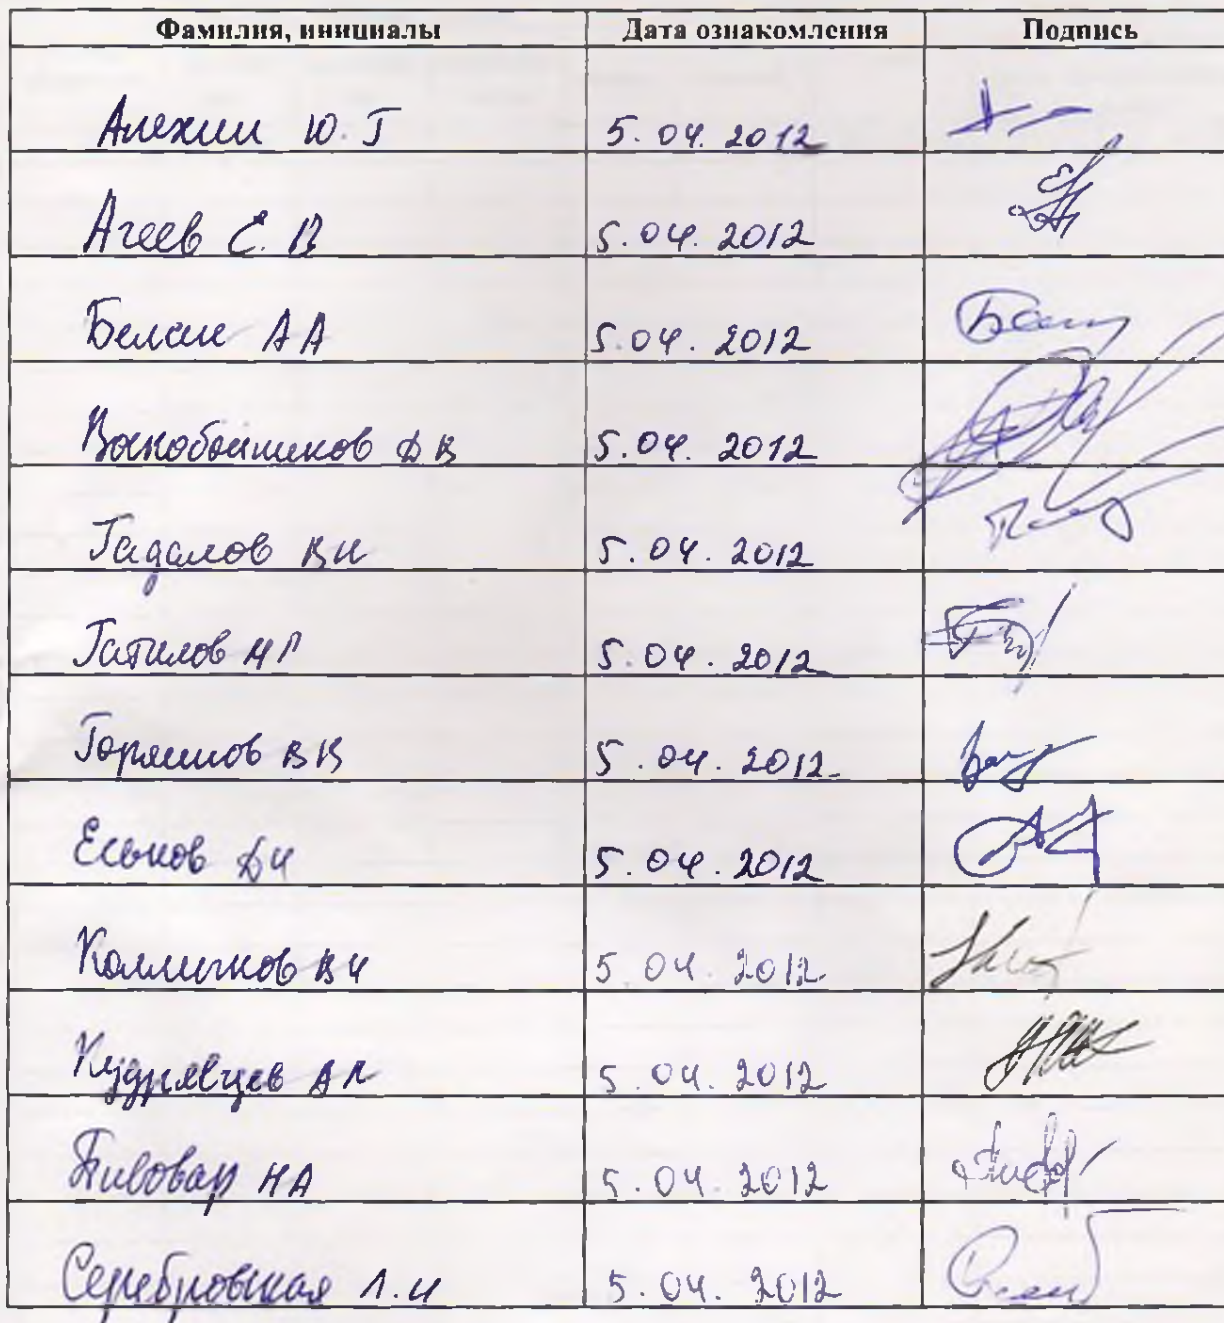 Фамилия, инициалы Дата ознакомления Подпись
Алехин Ю. Г 5. 04. 2012
Агеев Е. В 5. 04. 2012
Белан А А 5. 04. 2012
Воскобойников Д В 5. 04. 2012
Гадалов В Н 5. 04. 2012
Гатилов Н Г 5. 04. 2012
Горяинов В В 5. 04. 2012
Еськов Д Н 5. 04. 2012
Колмыков В И 5. 04. 2012
Кудрявцев А Л 5. 04. 2012
Пивовар Н А 5. 04. 2012
Серебровская Л. И 5. 04. 2012